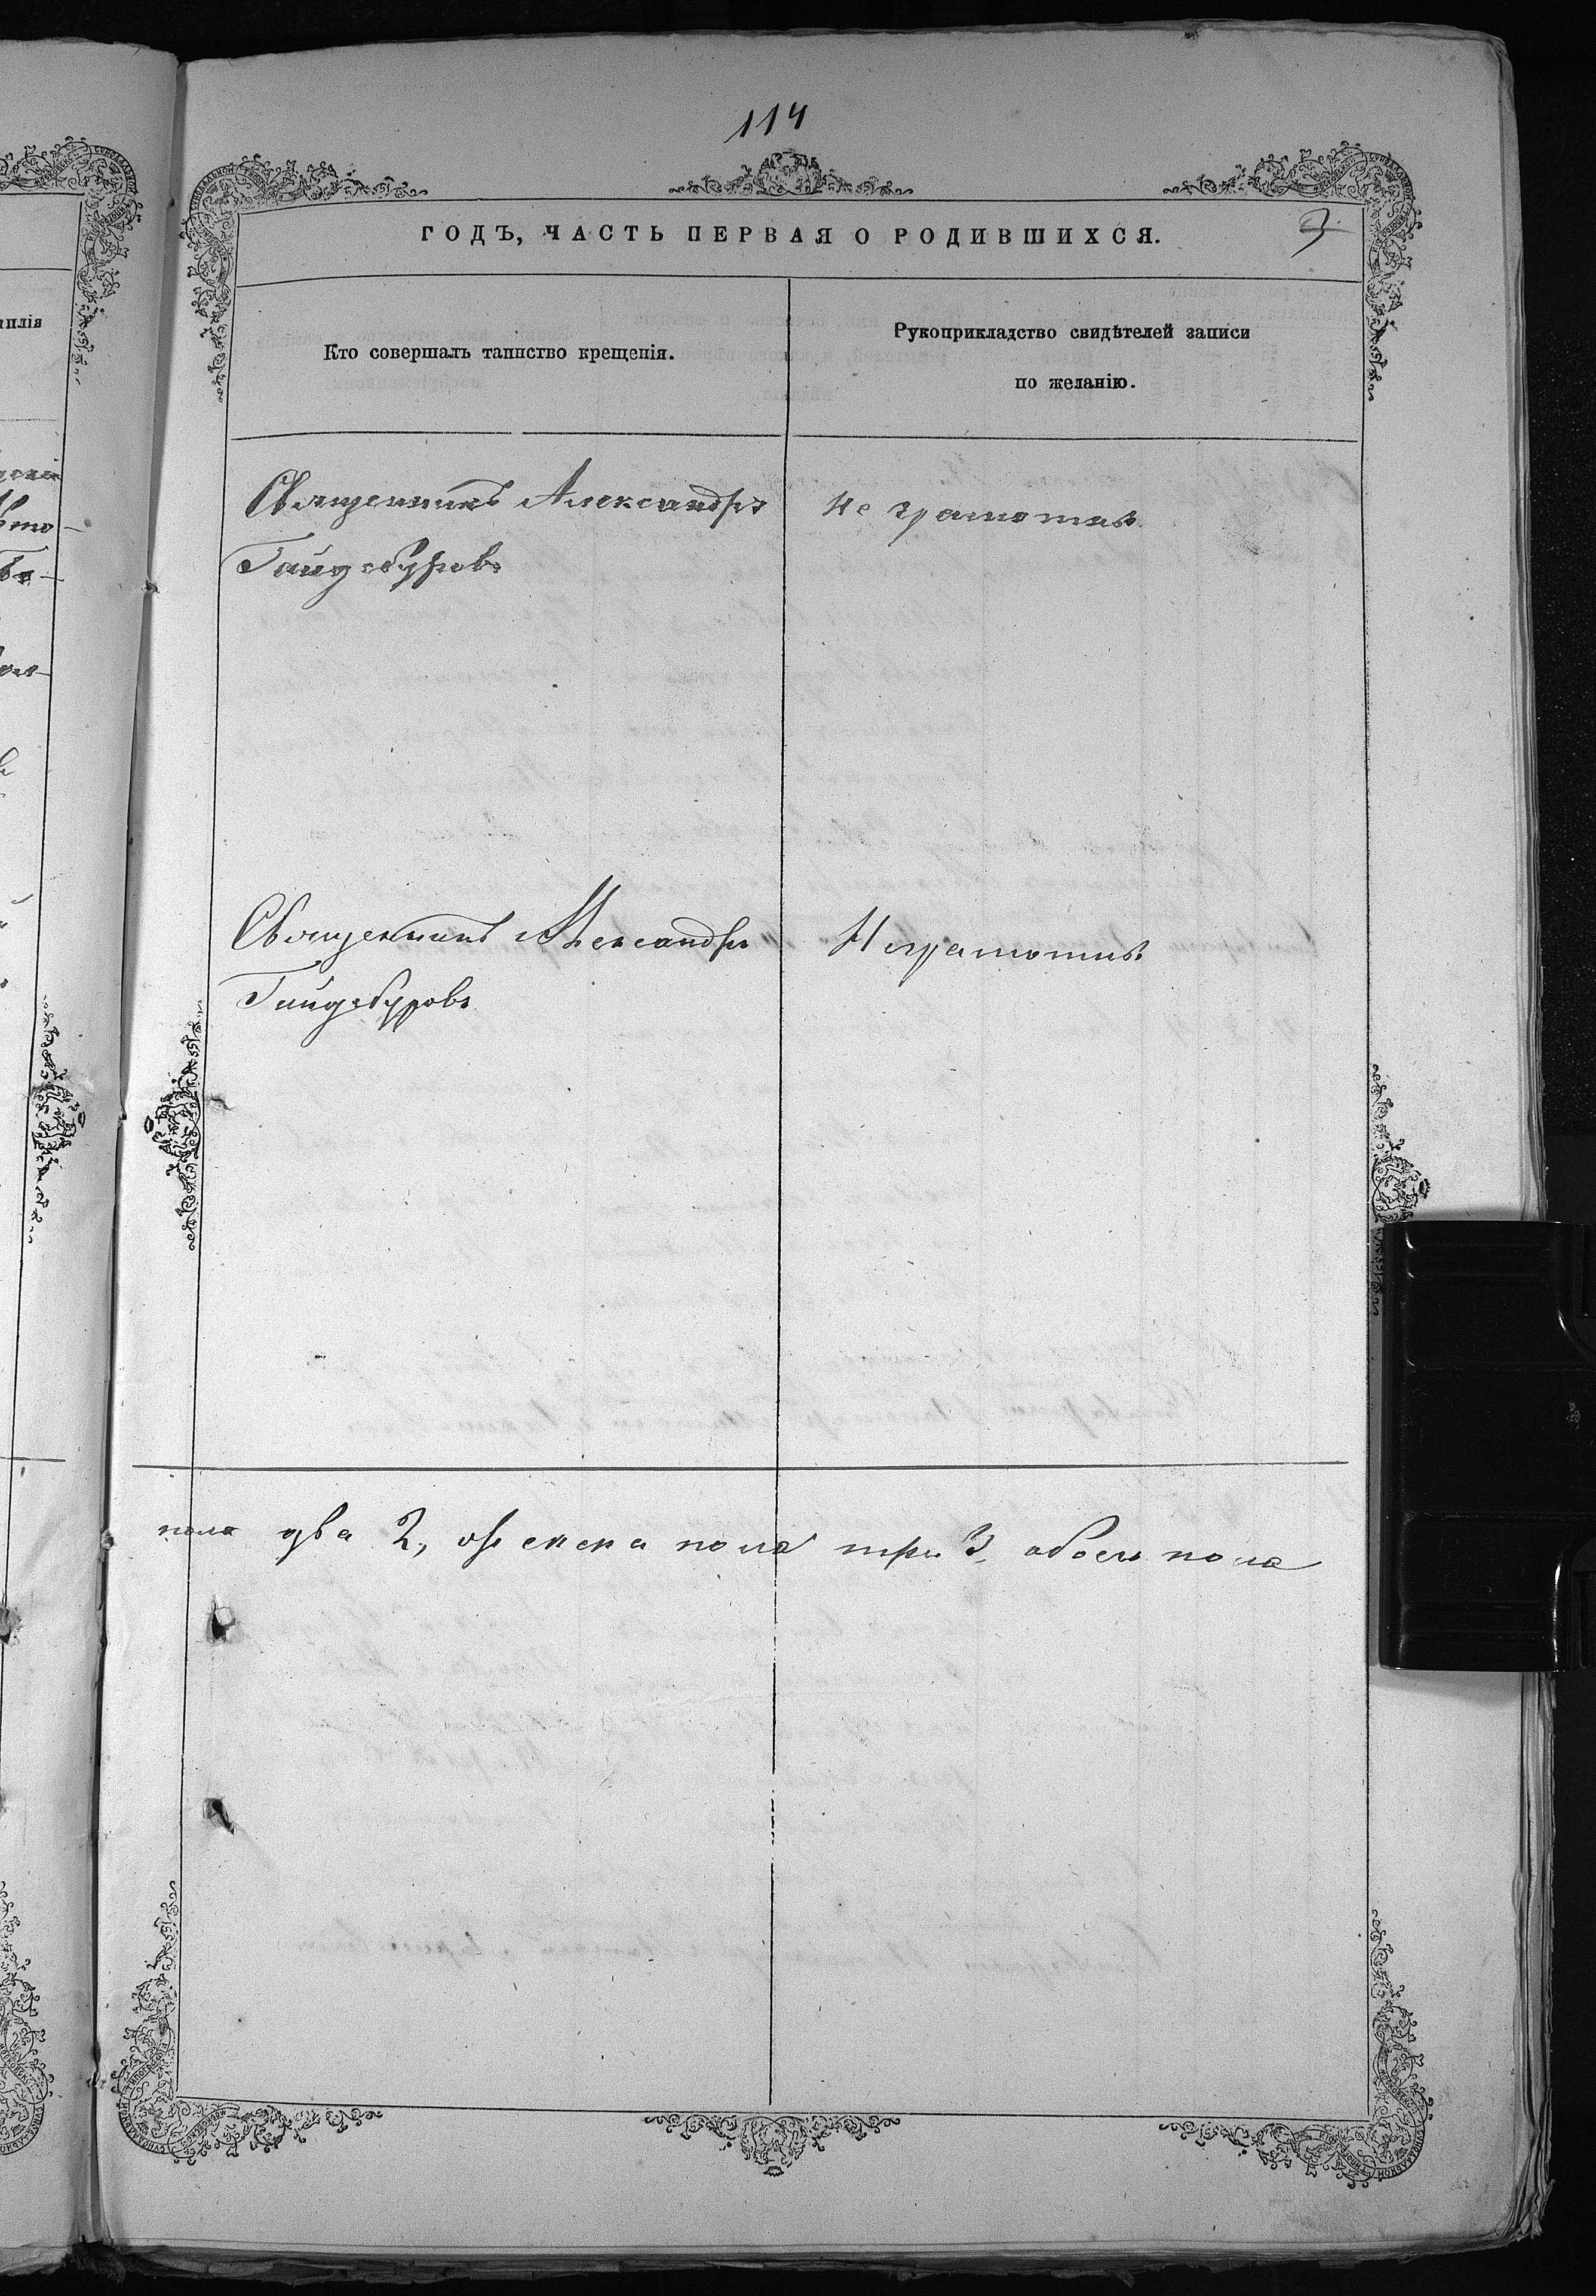 114
ГОДЪ, ЧАСТЬ ПЕРВАЯ О РОДИВШИХСЯ.
3
Кто совершалъ таинство крещенія.
Рукоприкладство свидѣтелей записи
по желанію.
Священникъ Александръ
Гайдебуровъ
не грамотны
Священникъ Александръ
Гайдебуровъ
Неграмотны
пола два 2, женска пола три 3, обоего пола